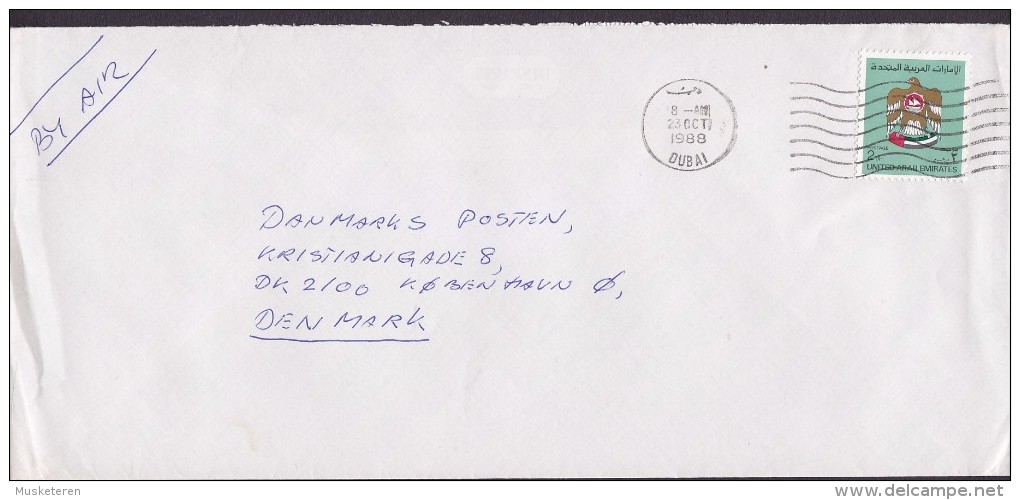 BY AIR
8-AM
23 OCT
1988
DUBAI
الإمارات العربية المتحدة
POSTAGE
2 ٢
UNITED ARAB EMIRATES
DANMARKS POSTEN,
KRISTIANIGADE 8,
DK 2100 KØBENHAVN Ø,
DENMARK
Musketeren
delcampe.net